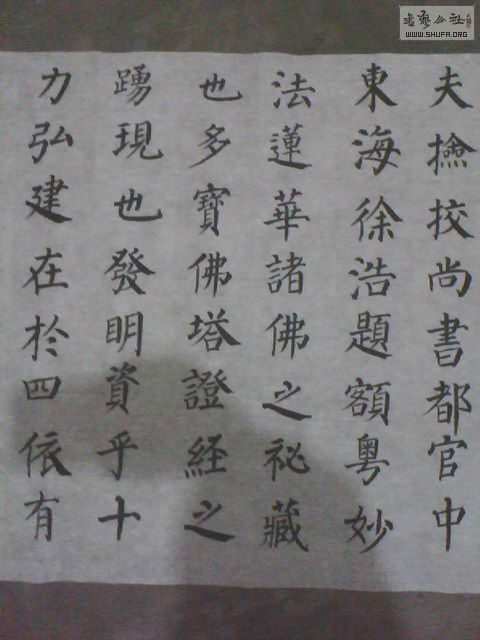 夫撿挍尚書都官中
東海徐浩題額粤妙
法蓮華諸佛之祕藏
也多寶佛塔證經之
踴現也發明資乎十
力弘建在於四依有
書藝公社
WWW.SHUFA.ORG